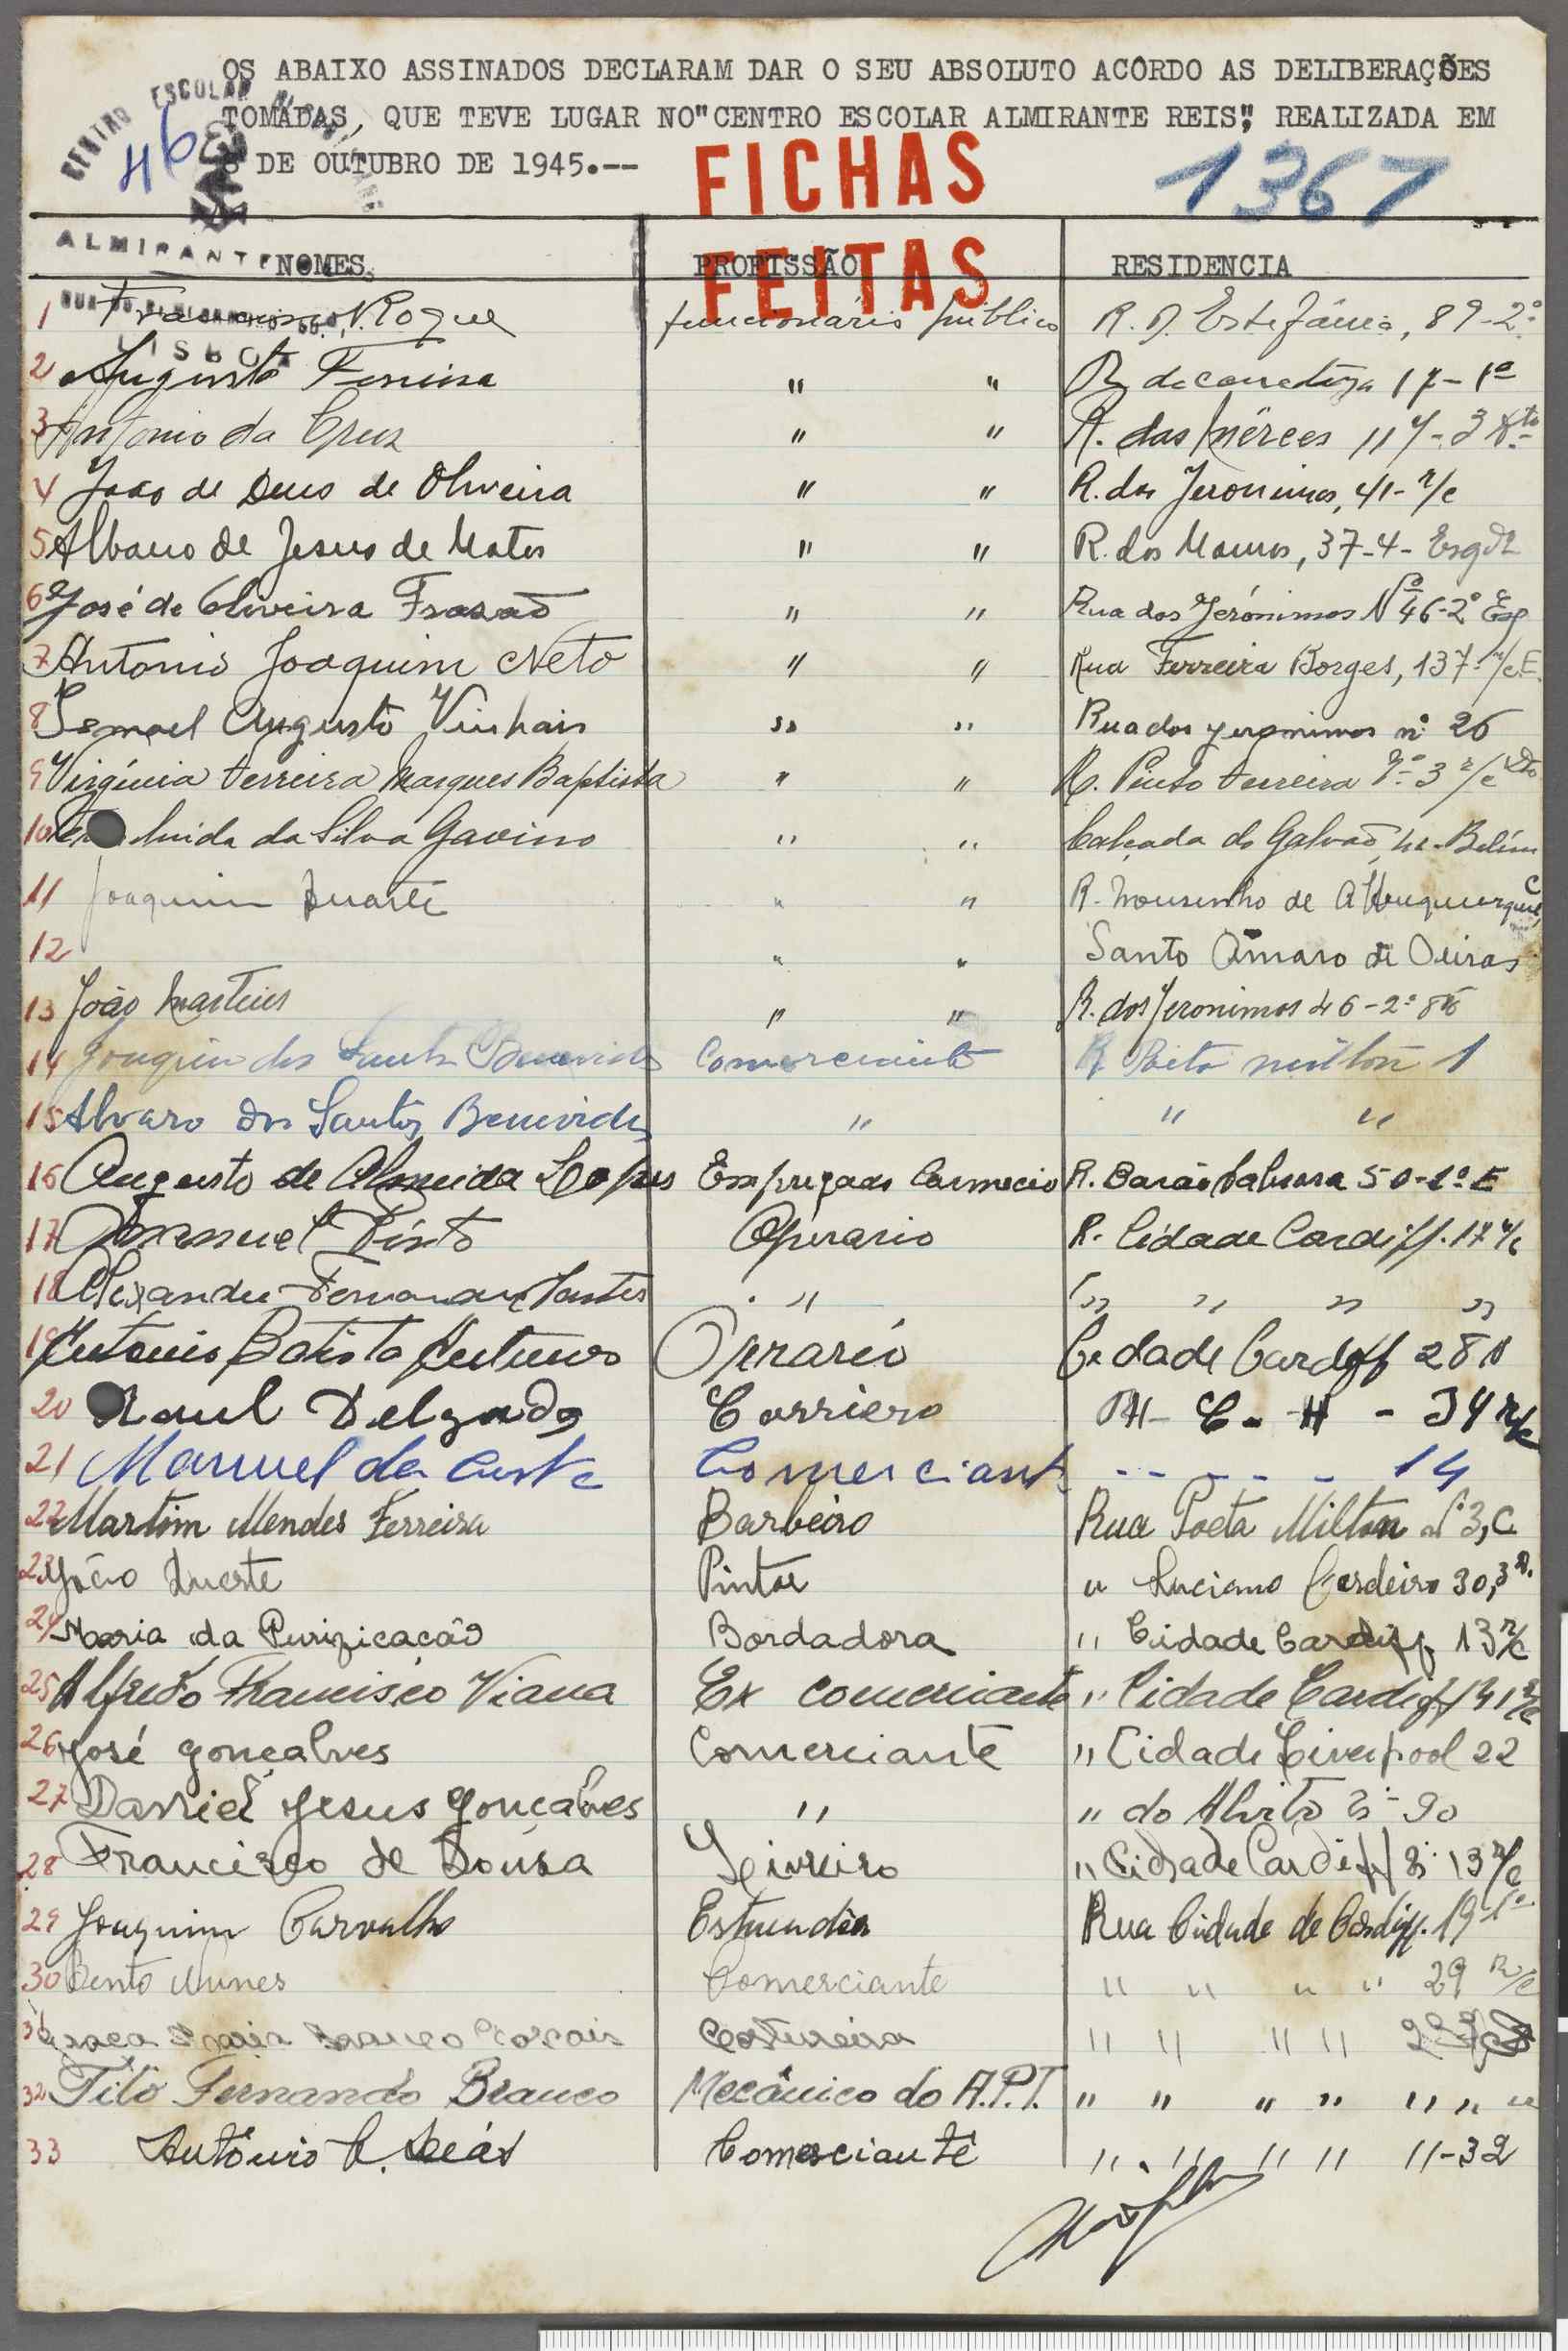 OS ABAIXO ASSINADOS DECLARAM DAR O SEU ABSOLUTO ACÔRDO AS DELIBERAÇÕES
TOMADAS, QUE TEVE LUGAR NO "CENTRO ESCOLAR ALMIRANTE REIS", REALIZADA EM
8 DE OUTUBRO DE 1945.--
CENTRO ESCOLAR
46
FICHAS
FEITAS
1367
ALMIRANTE
LISBOA
NOMES PROFISSÃO RESIDENCIA
1 Roque funcionário público R. D. Estefânia, 89-2º
2 Augusto Ferreira " " R. 17-1º
3 Antonio da Cruz " " R. das Mercês 117-3
4 João de Deus de Oliveira " " R. dos Jeronimos, 41-r/c
5 Albano de Jesus de Matos " " R. dos Mouros, 37-4-Esqdº
6 José de Oliveira Frazão " " Rua dos Jerónimos Nº 46-2º Esq
7 Antonio Joaquim Neto " " Rua Ferreira Borges, 137-r/c.E.
8 Augusto Vinhais " " Rua dos jeronimos nº 26
9 Virgínia Ferreira Marques Baptista " " R. Pinto Ferreira Nº 3 r/c Dto
10 da Silva Gavino " " Calçada do Galvão, Belém
11 Joaquim Duarte " " R. Mousinho de Albuquerque, C
12 " " Santo Amaro de Oeiras
13 João Martins " " R. dos Jeronimos 46-2º
14 Joaquim dos Santos Benevides Comerciante R Poeta milton 1
15 Alvaro dos Santos Benevides " " "
16 Augusto de Almeida Lopes Empregado Comercio R. Barão Sabrosa 50-1º E
17 Manuel Pinto Operario R. Cidade Cardiff. 17 r/c
18 Alexandre Santos " " " " "
19 Antonio Batista Antunes Operario Cidade Cardiff 28
20 Raul Delgado Corriero - C - H - 34 r/c
21 Manuel da Costa Comerciante - - - - - 14
22 Martim Mendes Ferreira Barbeiro Rua Poeta Milton nº 3, C
23 João Duarte Pintor " Luciano Cordeiro 30, 3º
24 Maria da Purificação Bordadora " Cidade Cardiff 13 r/c
25 Alfredo Francisco Viana Ex comerciante " Cidade Cardiff 41 r/c
26 José gonçalves Comerciante " Cidade Liverpool 22
27 Daniel Jesus Gonçalves " " do Alvito nº 90
28 Francisco de Sousa Leiteiro " Cidade Cardiff nº 13 r/c
29 Joaquim Carvalho Rua Cidade de Cardiff. 19-1º
30 Bento Nunes Comerciante " " " " 29 R/c
31 Branco Costureira " " " "
32 Tito Fernando Branco Mecânico do A.P.T. " " " " " " "
33 António C. Comerciante " " " " "-32